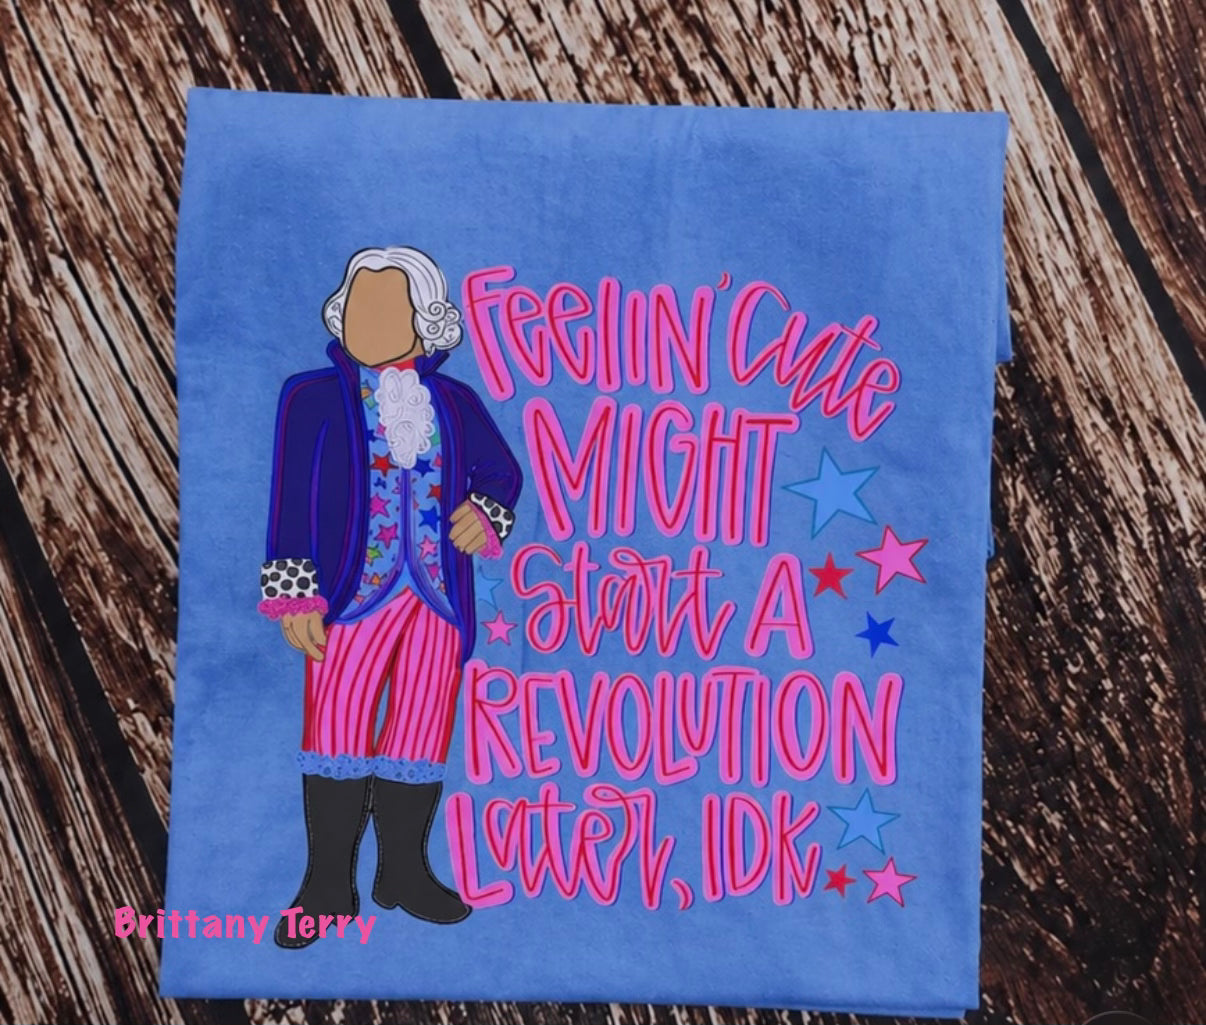 Feelin' Cute
MIGHT
Start A
REVOLUTION
Later, IDK
Brittany Terry